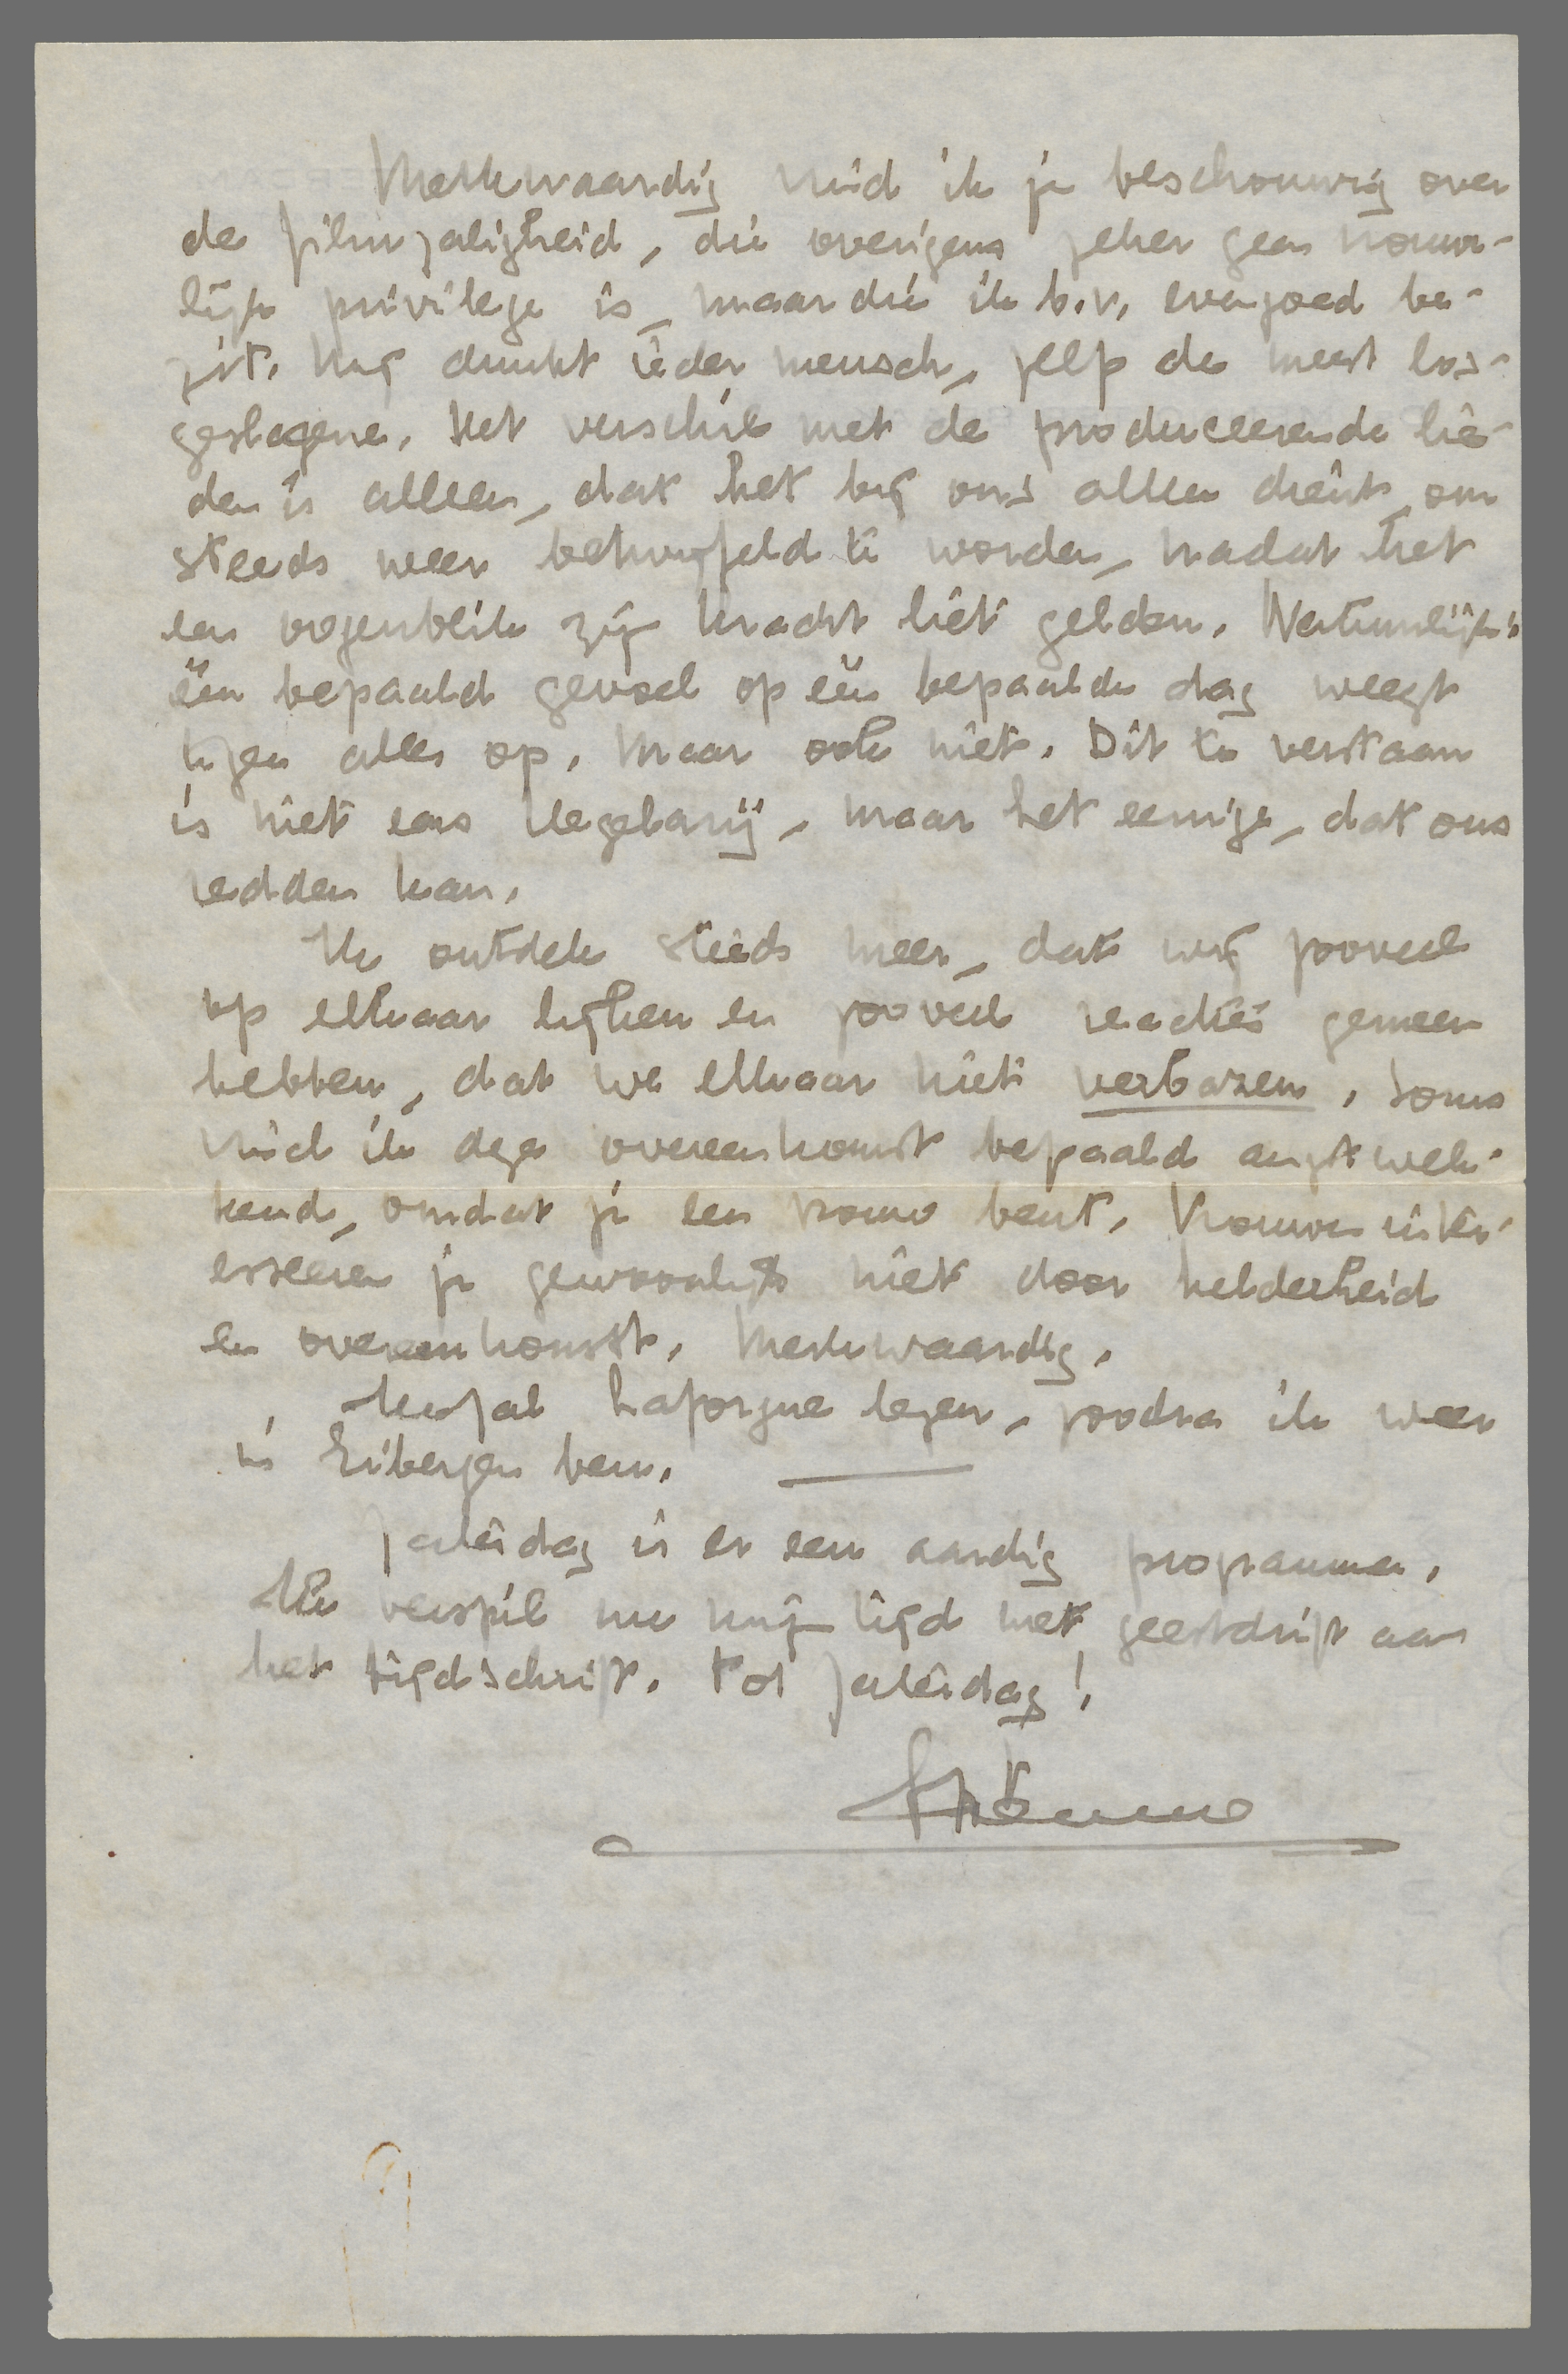 Merkwaardig vind ik je beschouwing over
de filmzaligheid, die overigens zeker geen vrouwe-
lijk privilege is, maar die ik b.v. evengoed be-
zit. Mij dunkt ieder mensch, zelfs de meest los-
geslagene. Het verschil met de produceerende lie-
den is alleen, dat het bij ons alleen dient, om
steeds weer betwijfeld te worden, nadat het
een oogenblik zijn kracht liet gelden. Natuurlijk:
één bepaald gevoel op één bepaalde dag weegt
tegen alles op. Maar ook niet. Dit te verstaan
is niet eens vlegelarij, maar het eenige, dat ons
redden kan.
Ik ontdek steeds meer, dat wij zooveel
op elkaar lijken en zooveel reacties gemeen
hebben, dat we elkaar niet verbazen. Soms
vind ik deze overeenkomst bepaald angstwek-
kend, omdat je een vrouw bent. Vrouwen inter-
esseeren je gewoonlijk niet door helderheid
en overeenkomst. Merkwaardig.
Ik zal Laforgue lezen, zoodra ik weer
in Eibergen ben.
Zaterdag is er een aardig programma.
Ik verspil nu mijn tijd met geestdrift aan
het tijdschrift. Tot Zaterdag!
Menno